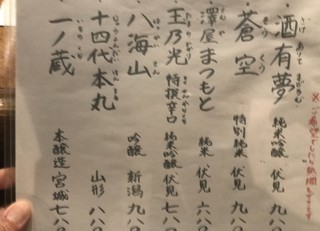 ・酒有夢 純米吟醸 伏見 九八〇
・蒼空 特別純米 伏見 九八〇
・澤屋まつもと 純米 伏見 六八〇
・王乃光 特撰辛口 純米吟醸 伏見 七八〇
・八海山 吟醸 新潟 九八〇
・十四代本丸 山形 八八〇
・一ノ蔵 本醸造 宮城 七八〇